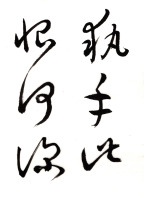 執手此
恨何深